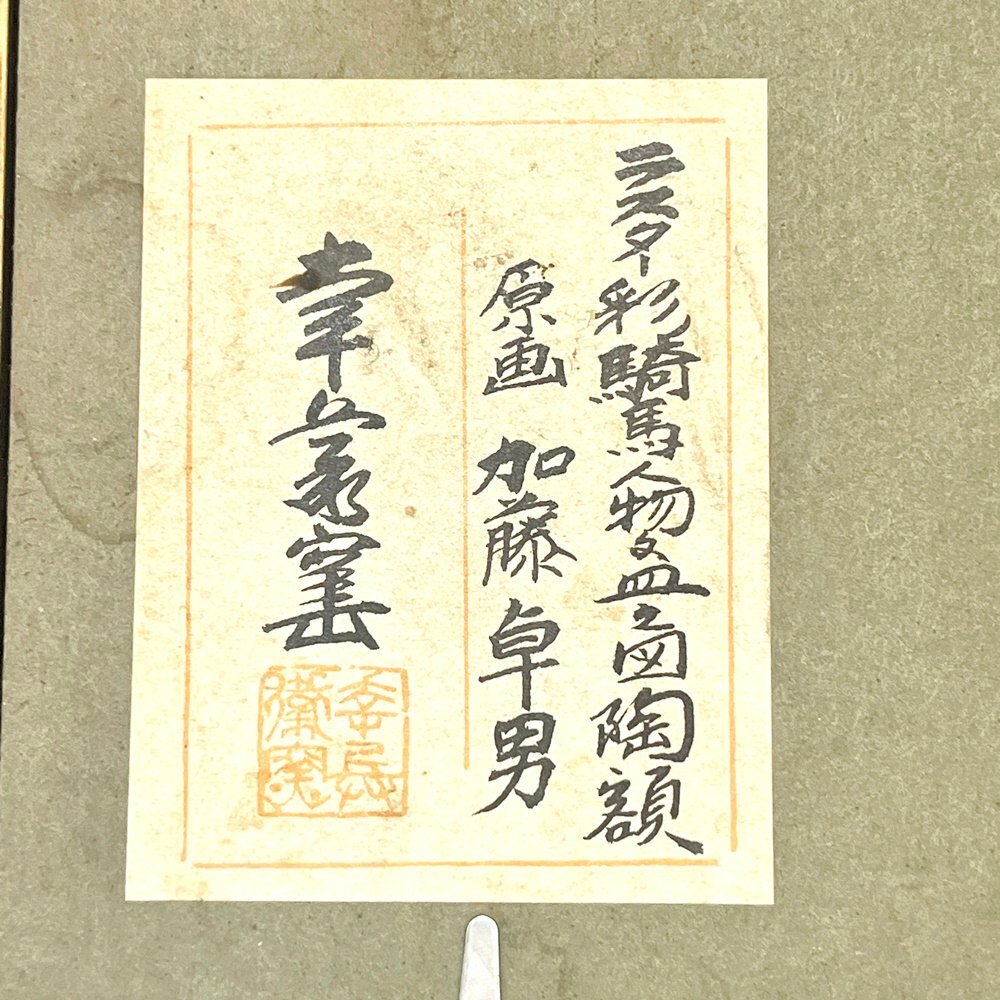 ラスター彩騎馬人物文皿之図陶額
原画 加藤卓男
幸兵衛窯
幸兵衛窯